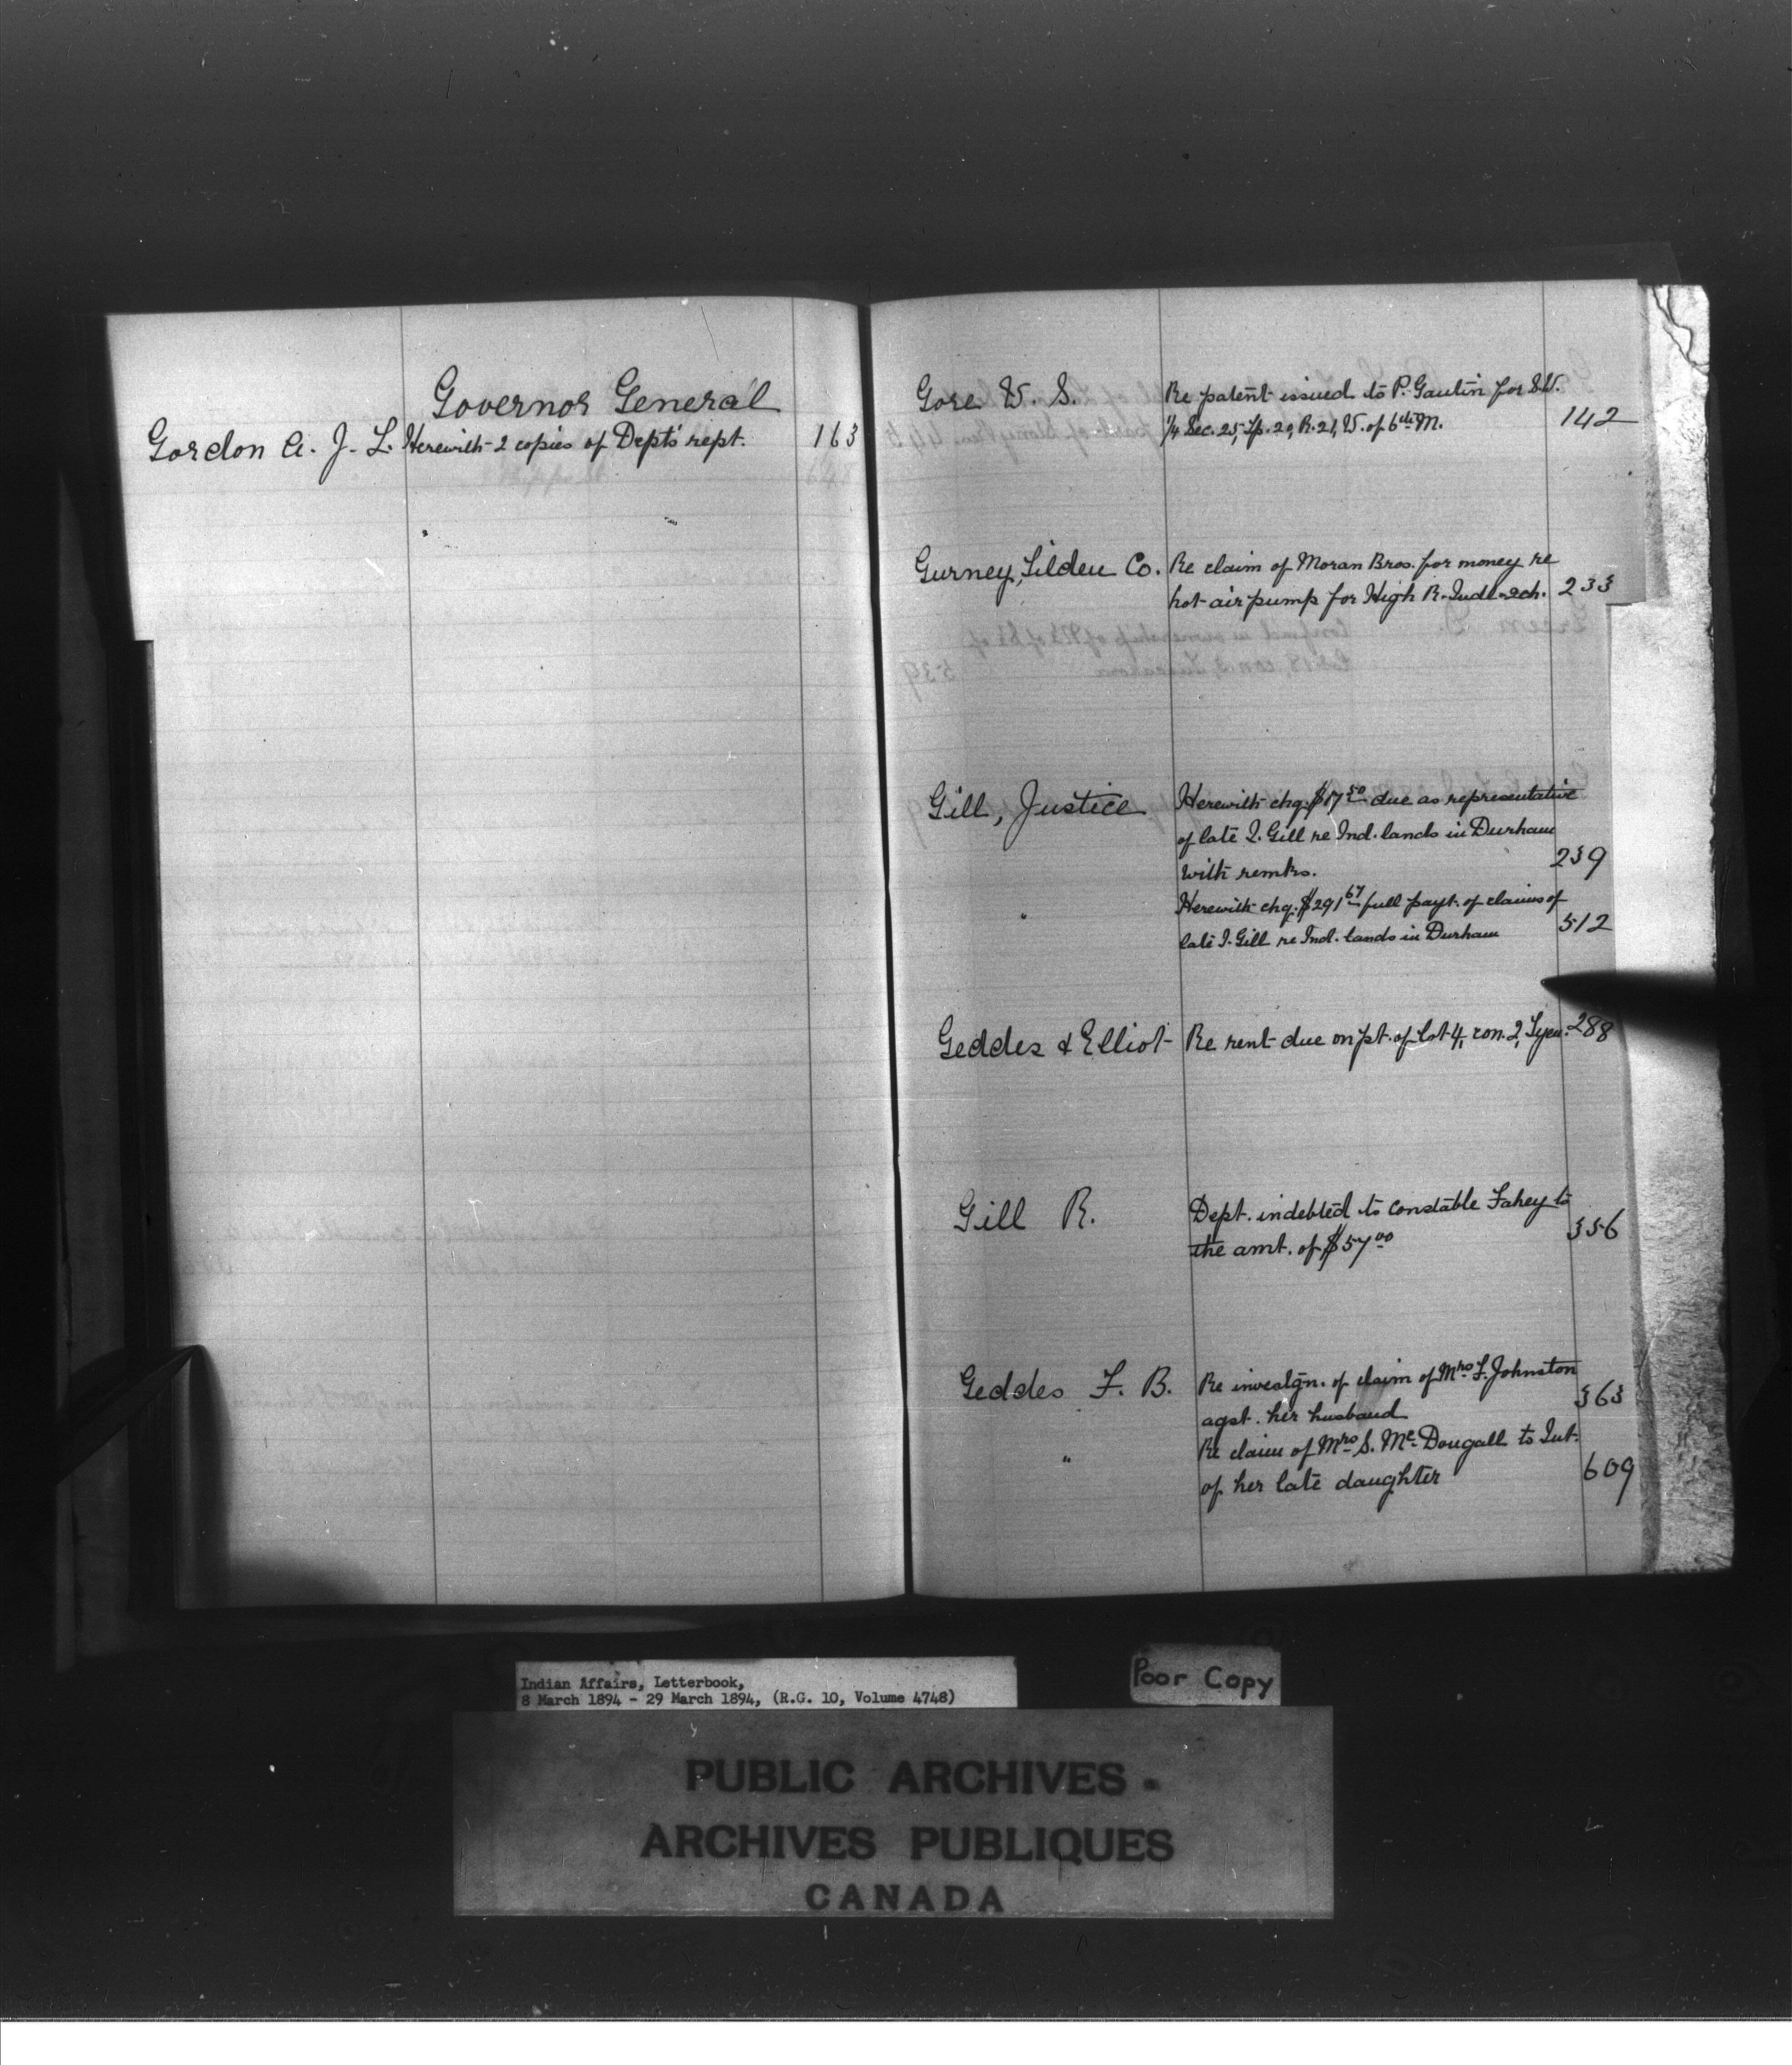 Governor General
Gordon A. J. L. Herewith 2 copies of Dept's rept. 163
Gore W. S. Re patent issued to P. Gautin for S.W.
1/4 Sec. 25, Tp. 20, R. 21, W. of 6th M. 142
Gurney, Tilden Co. Re claim of Moran Bros. for money re
hot air pump for High R. Indl. Sch. 233
Gill, Justice Herewith chq. $17.50 due as representative
of late I. Gill re Ind. lands in Durham
with remks. 239
" Herewith chq. $291.67 full payt. of claims of
late I. Gill re Ind. lands in Durham 512
Geddes & Elliot Re rent due on pt. of lot 4, con. 2, Tyen. 288
Gill R. Dept. indebted to Constable Fahey to
the amt. of $57.00 356
Geddes F. B. Re investgn. of claim of Mrs. F. Johnston
agst. her husband 363
" Re claim of Mrs. S. Mc. Dougall to Int.
of her late daughter 609
Indian Affairs, Letterbook,
8 March 1894 - 29 March 1894, (R.G. 10, Volume 4748)
Poor Copy
PUBLIC ARCHIVES
ARCHIVES PUBLIQUES
CANADA